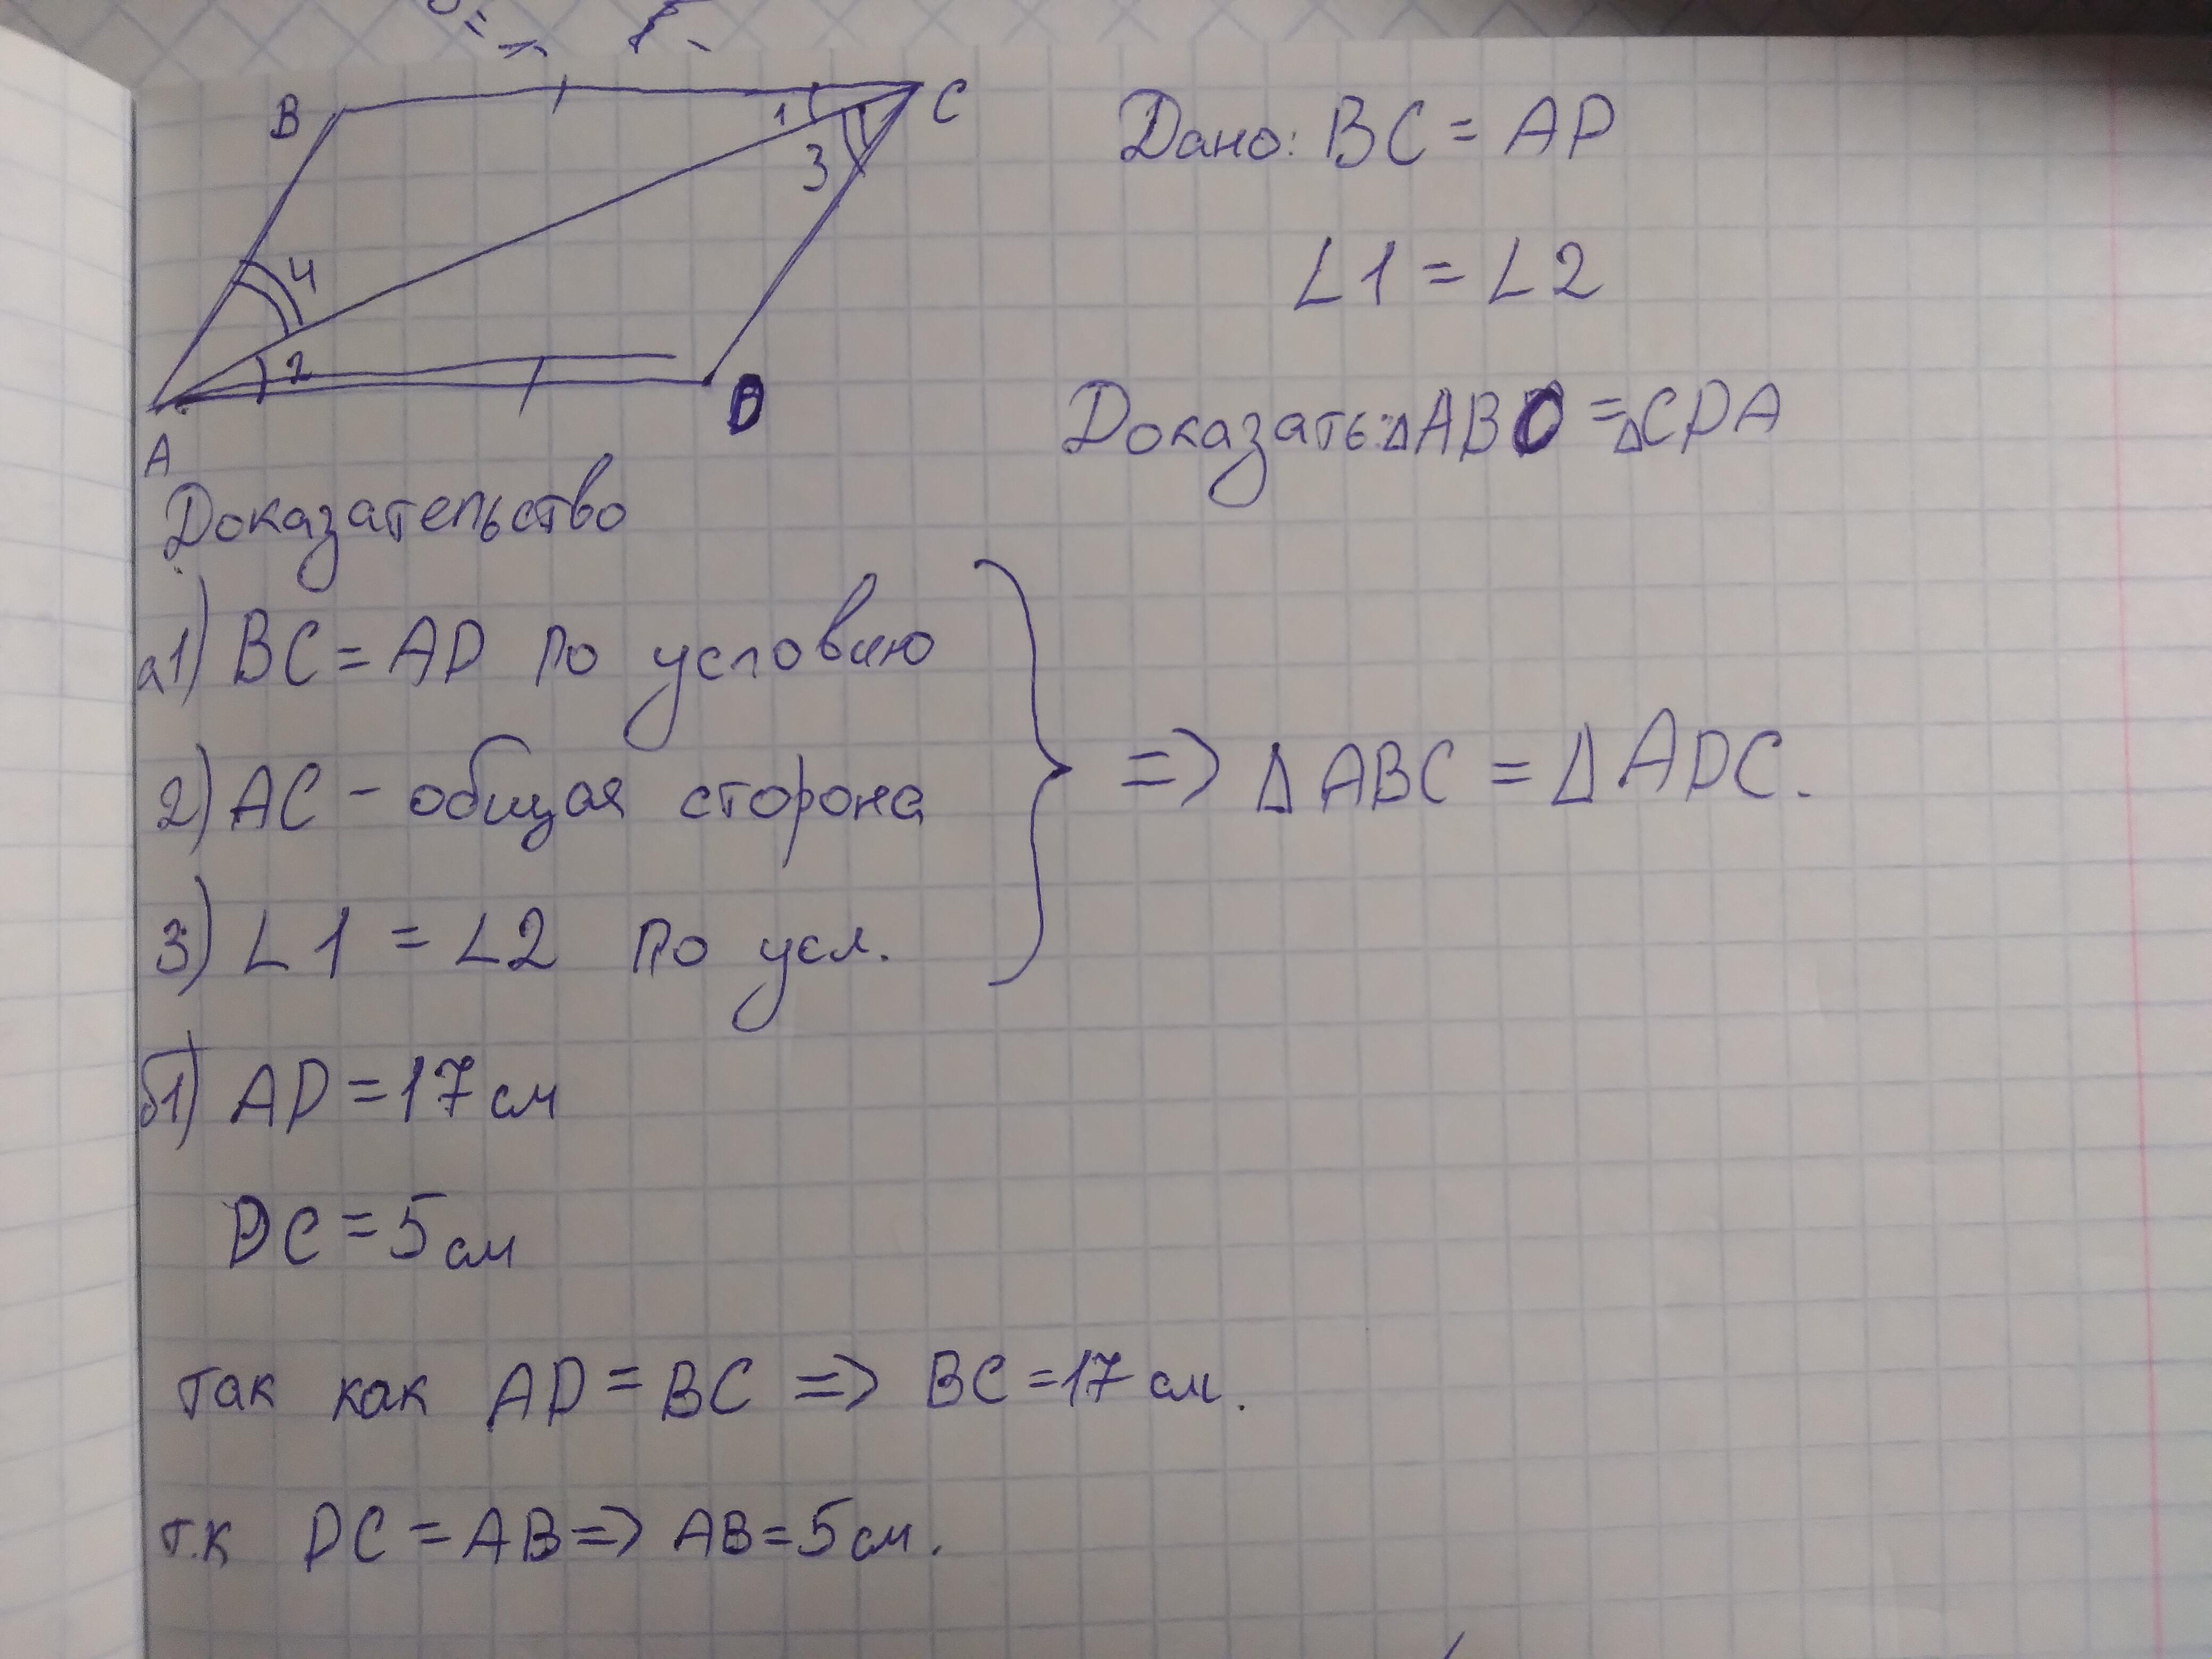 B
C
1
3
4
2
A
D
Дано: BC = AD
∠1 = ∠2
Доказать: △ABC = △CDA
Доказательство
а1) BC = AD по условию
2) AC - общая сторона
3) ∠1 = ∠2 по усл.
=> △ABC = △ADC.
б1) AD = 17 см
DC = 5 см
так как AD = BC => BC = 17 см.
т.к DC = AB => AB = 5 см.